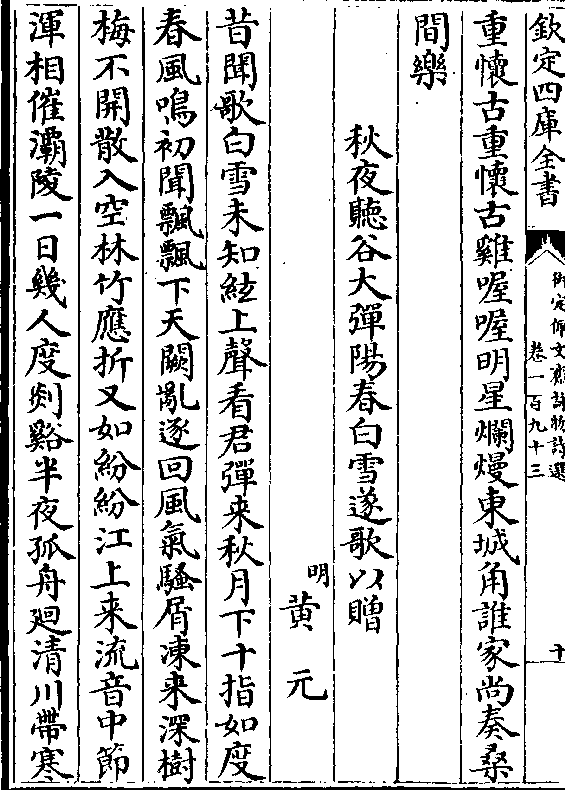 欽定四庫全書
御定佩文齋詠物詩選
卷一百九十三
十
重懷古重懷古雞喔喔明星爛熳東城角誰家尚奏桑
間樂
秋夜聽谷大彈陽春白雪遂歌以贈
明
黃元
昔聞歌白雪未知絃上聲看君彈来秋月下十指如度
春風鳴初聞飄飄下天闕亂逐回風氣騷屑凍来深樹
梅不開散入空林竹應折又如紛紛江上来流音中節
渾相催灞陵一日幾人度剡谿半夜孤舟廻清川帶寒